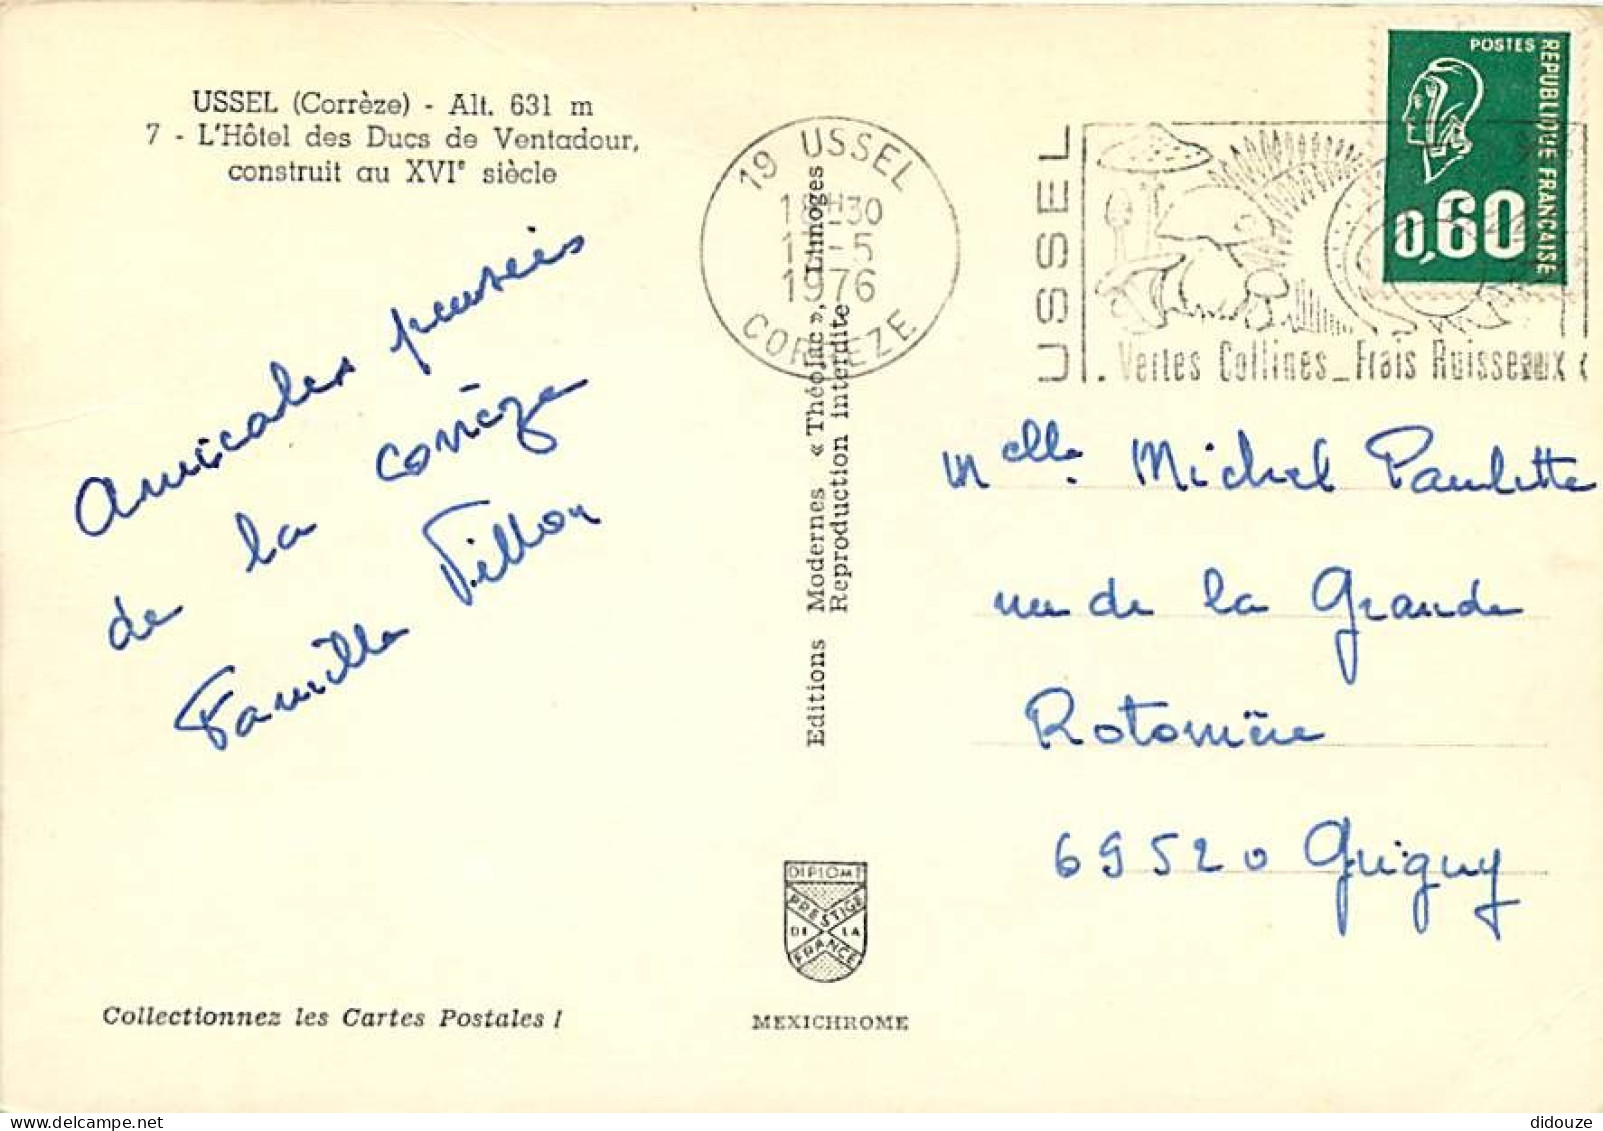 USSEL (Corrèze) - Alt. 631 m
7 - L'Hôtel des Ducs de Ventadour,
construit au XVIe siècle
Amicales pensées
de la corrèze
Famille Villon
Collectionnez les Cartes Postales !
19 USSEL
18H30
-5
1976
CORREZE
Editions Modernes « Théojac », Limoges
Reproduction interdite
DIPLOME
PRESTIGE
DE LA
FRANCE
MEXICHROME
USSEL
Vertes Collines_Frais Ruisseaux
POSTES
REPUBLIQUE FRANCAISE
0,60
Melle Michel Paulette
rue de la Grande
Rotonnière
69520 Grigny
didouze